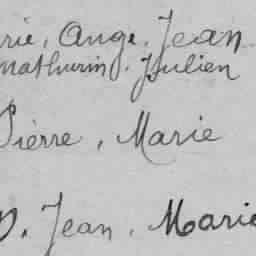 rie, Ange, Jean
mathurin, Julien
Pierre, Marie
D, Jean, Marie